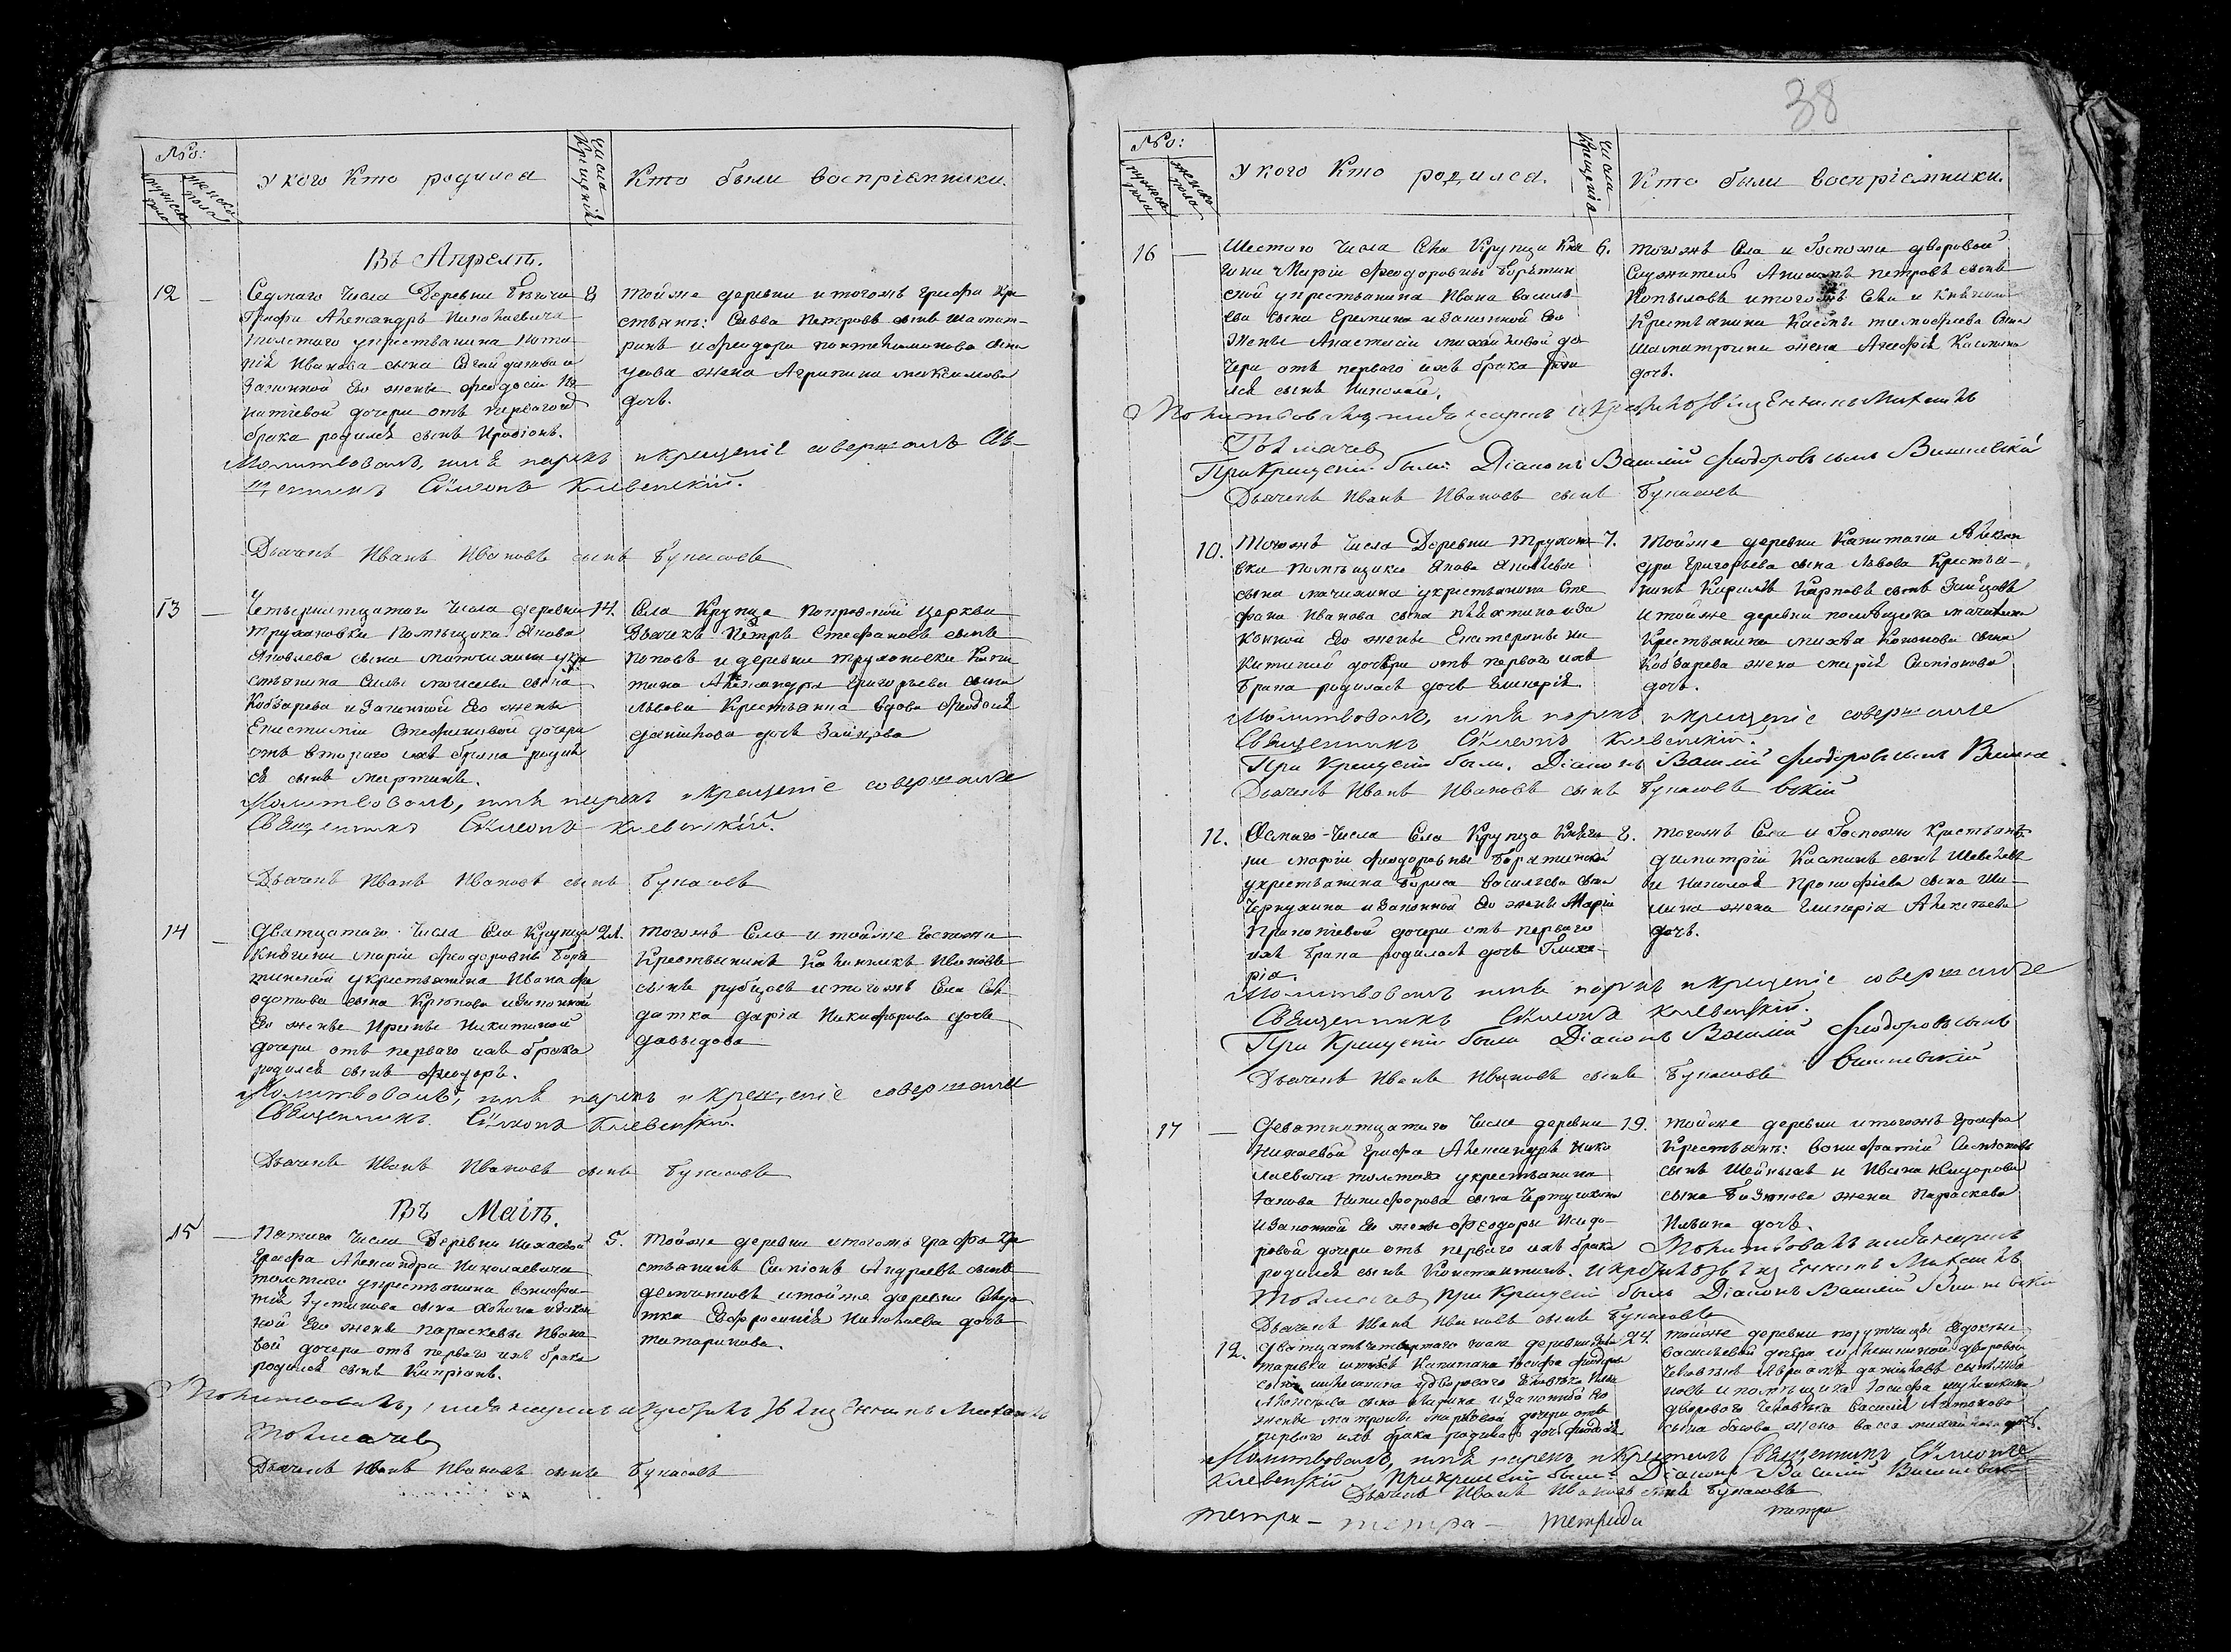 38
№о:
мужеска пола
женска пола
У кого кто родился
Число Крещенія
Кто были воспріемники.
Въ Апрелѣ.
12 — Седмаго Числа Деревни 8
Графа Александра Николаевича
толстаго укрестьянина
Иванова сына
Законной его жены Феодосіи
дочери отъ перваго
брака родился сынъ Иродіонъ.
тойже деревни итогожъ Графа кре
стьянъ: Савва Петровъ сынъ
и Феодора Пантелимонова сына
жена Агрипина Максимова
дочь.
Молитвовалъ, имя нарекъ и крещеніе совершалъ Св-
щенникъ Сѵмеонъ Клевенскій.
Дьячекъ Иванъ Ивановъ сынъ Букасовъ
13 — Четырнатцатаго Числа деревни 14.
Трухановки Помѣщика Якова
Яковлева сына Матчихина укре
стьянина Силы Моисеева сына
Кобзарева и Законной его жены
Епистиміи Стефановой дочери
отъ втораго ихъ брака родил
ся сынъ Мартинъ.
Села Крупца Покровской Церкви
Дьячекъ Петръ Стефановъ сынъ
Поповъ и деревни Трухановки Капи
тана Александра Григорьева сына
Львова Крестьянка вдова Феодосія
Данійлова дочь Зайцова
Молитвовалъ, имя нарекъ и крещеніе совершалъ
Священникъ Сѵмеонъ Клевенскій.
Дьячекъ Иванъ Ивановъ сынъ Букасовъ
14 — Дватцатаго Числа Села Крупца 21.
Княгини Маріи Феодоровны Боря
тинской укрестьянина Ивана Фе
дотова сына Крюкова и Законной
Его жены Ирины Никитиной
дочери отъ перваго ихъ брака
родился сынъ Феодоръ.
тогожъ Села и тойже Госпожи
Крестьянинъ Калинникъ Ивановъ
сынъ Рубцовъ итогожъ Села Сол
датка Дарія Никифорова дочь
Давыдова
Молитвовалъ, имя нарекъ и крещеніе совершалъ
Священникъ Сѵмеонъ Клевенскій.
Дьячекъ Иванъ Ивановъ сынъ Букасовъ
Въ Маіѣ.
15 — Пятаго Числа Деревни Нехаевой 5.
Графа Александра Николаевича
толстаго укрестьянина Вонифа
тія Іустинова сына и Закон
ной Его жены Параскевы Ивано
вой дочери отъ перваго ихъ брака
родился сынъ Кипріанъ.
тойже деревни итогожъ Графа Кре
стьянинъ Симіонъ Андреевъ сынъ
итойже деревни Солда
тка Евфросинія Николаева дочь
татаринова.
Молитвовалъ, имя нарекъ и крестилъ Священникъ Михаилъ
Толмачев
Дьячекъ Иванъ Ивановъ сынъ Букасовъ
№о:
мужеска пола
женска пола
У кого кто родился.
Число Крещенія
Кто были воспріемники.
16 — Шестаго Числа Села Крупца Кня 6.
гини Маріи Феодоровны Борятин
ской укрестьянина Ивана Василь
ева сына Еремина и Законной Его
жены Анастасіи Михайловой до
чери отъ перваго ихъ брака роди
лся сынъ Николай.
тогожъ Села и Госпожи дворовой
Служитель Анисимъ Петровъ сынъ
Копыловъ итогожъ Села и Княгини
Крестьянина Касмы тимофеева Сына
Шаматрина жена Агафія Касмина
дочь.
Молитвовалъ имя нарекъ и крестилъ Священникъ Михаилъ
Толмачев
При Крещеніи были: Діаконъ Василій Феодоровъ сынъ Вишневскій
Дьячекъ Иванъ Ивановъ сынъ Букасовъ
10. Тогожъ Числа Деревни Трухано 7.
вки Помѣщика Якова Яковлева
сына Мачихина укрестьянина Сте
фана Иванова сына и За
конной Его жены Екатерины Ни
китиной дочери отъ перваго ихъ
брака родилась дочь Гликерія
Тойже деревни Капитана Алекса
ндра Григорьева сына Львова Крестья-
нинъ Кирилъ Карповъ сынъ Зайцовъ
и тойже деревни помѣщика Мачихина
Крестьянина Михѣя Кононова сына
Кобзарева жена Марія Симіонова
дочь.
Молитвовалъ, имя нарекъ, и крещеніе совершалъ
Священникъ Сѵмеонъ Клевенскій.
При Крещеніи были: Діаконъ Василій Феодоровъ сынъ Вишне
вскій
Дьячекъ Иванъ Ивановъ сынъ Букасовъ
11. Осмаго Числа Села Крупца Княги 8.
ни Маріи Феодоровны Борятинской
укрестьянина Бориса Васильева сына
Чернухина и Законной Его жены Маріи
Прокопіевой дочери отъ перваго
ихъ брака родилась дочь Глике-
рія.
тогожъ Села и Госпожи Крестьянъ:
Димитрій Касминъ сынъ
и Николая Прокофіева сына Ши-
лина жена Гликерія Алексѣева
дочь.
Молитвовалъ имя нарекъ и крещеніе совершалъ
Священникъ Сѵмеонъ Клевенскій.
При Крещеніи были Діаконъ Василій Феодоровъ сынъ
Вишневскій
Дьячекъ Иванъ Ивановъ сынъ Букасовъ
17 — Деватнатцатаго Числа деревни 19.
Нехаевой Графа Александра Нико
лаевича толстаго укрестьянина
Іакова Никифорова сына
и Законной Его жены Феодоры Исидо-
ровой дочери отъ перваго ихъ брака
родился сынъ Константинъ.
тойже деревни итогожъ Графа
Крестьянъ: Вонифатій Симіоновъ
сынъ и Ивана Исидорова
сына жена Параскева
Ильина дочь.
Молитвовалъ имя нарекъ
и крестилъ Священникъ Михаилъ
Толмачев При Крещеніи былъ Діаконъ Василій Вишневскій
Дьячекъ Иванъ Ивановъ сынъ Букасовъ
12. Дватцать четвертаго числа деревни 24.
Капитана Іосифа Феодора
сына дворового человѣка
сына и Законной Его
жены Матроны дочери отъ
перваго ихъ брака родилась дочь Феодосія
тойже деревни порутчицы Евдокіи
Васильевой дочери дворовой
человѣкъ Авраамъ Данійловъ сынъ
и помѣщика Іосифа
дворового человѣка Василія
сына жена Васса Михайлова дочь.
Молитвовалъ, имя нарекъ и крестилъ Священникъ Сѵмеонъ
Клевенскій При крещеніи были: Діаконъ Василій Вишневскій
Дьячекъ Иванъ Ивановъ сынъ Букасовъ
тетра — тетра — тетради тетра